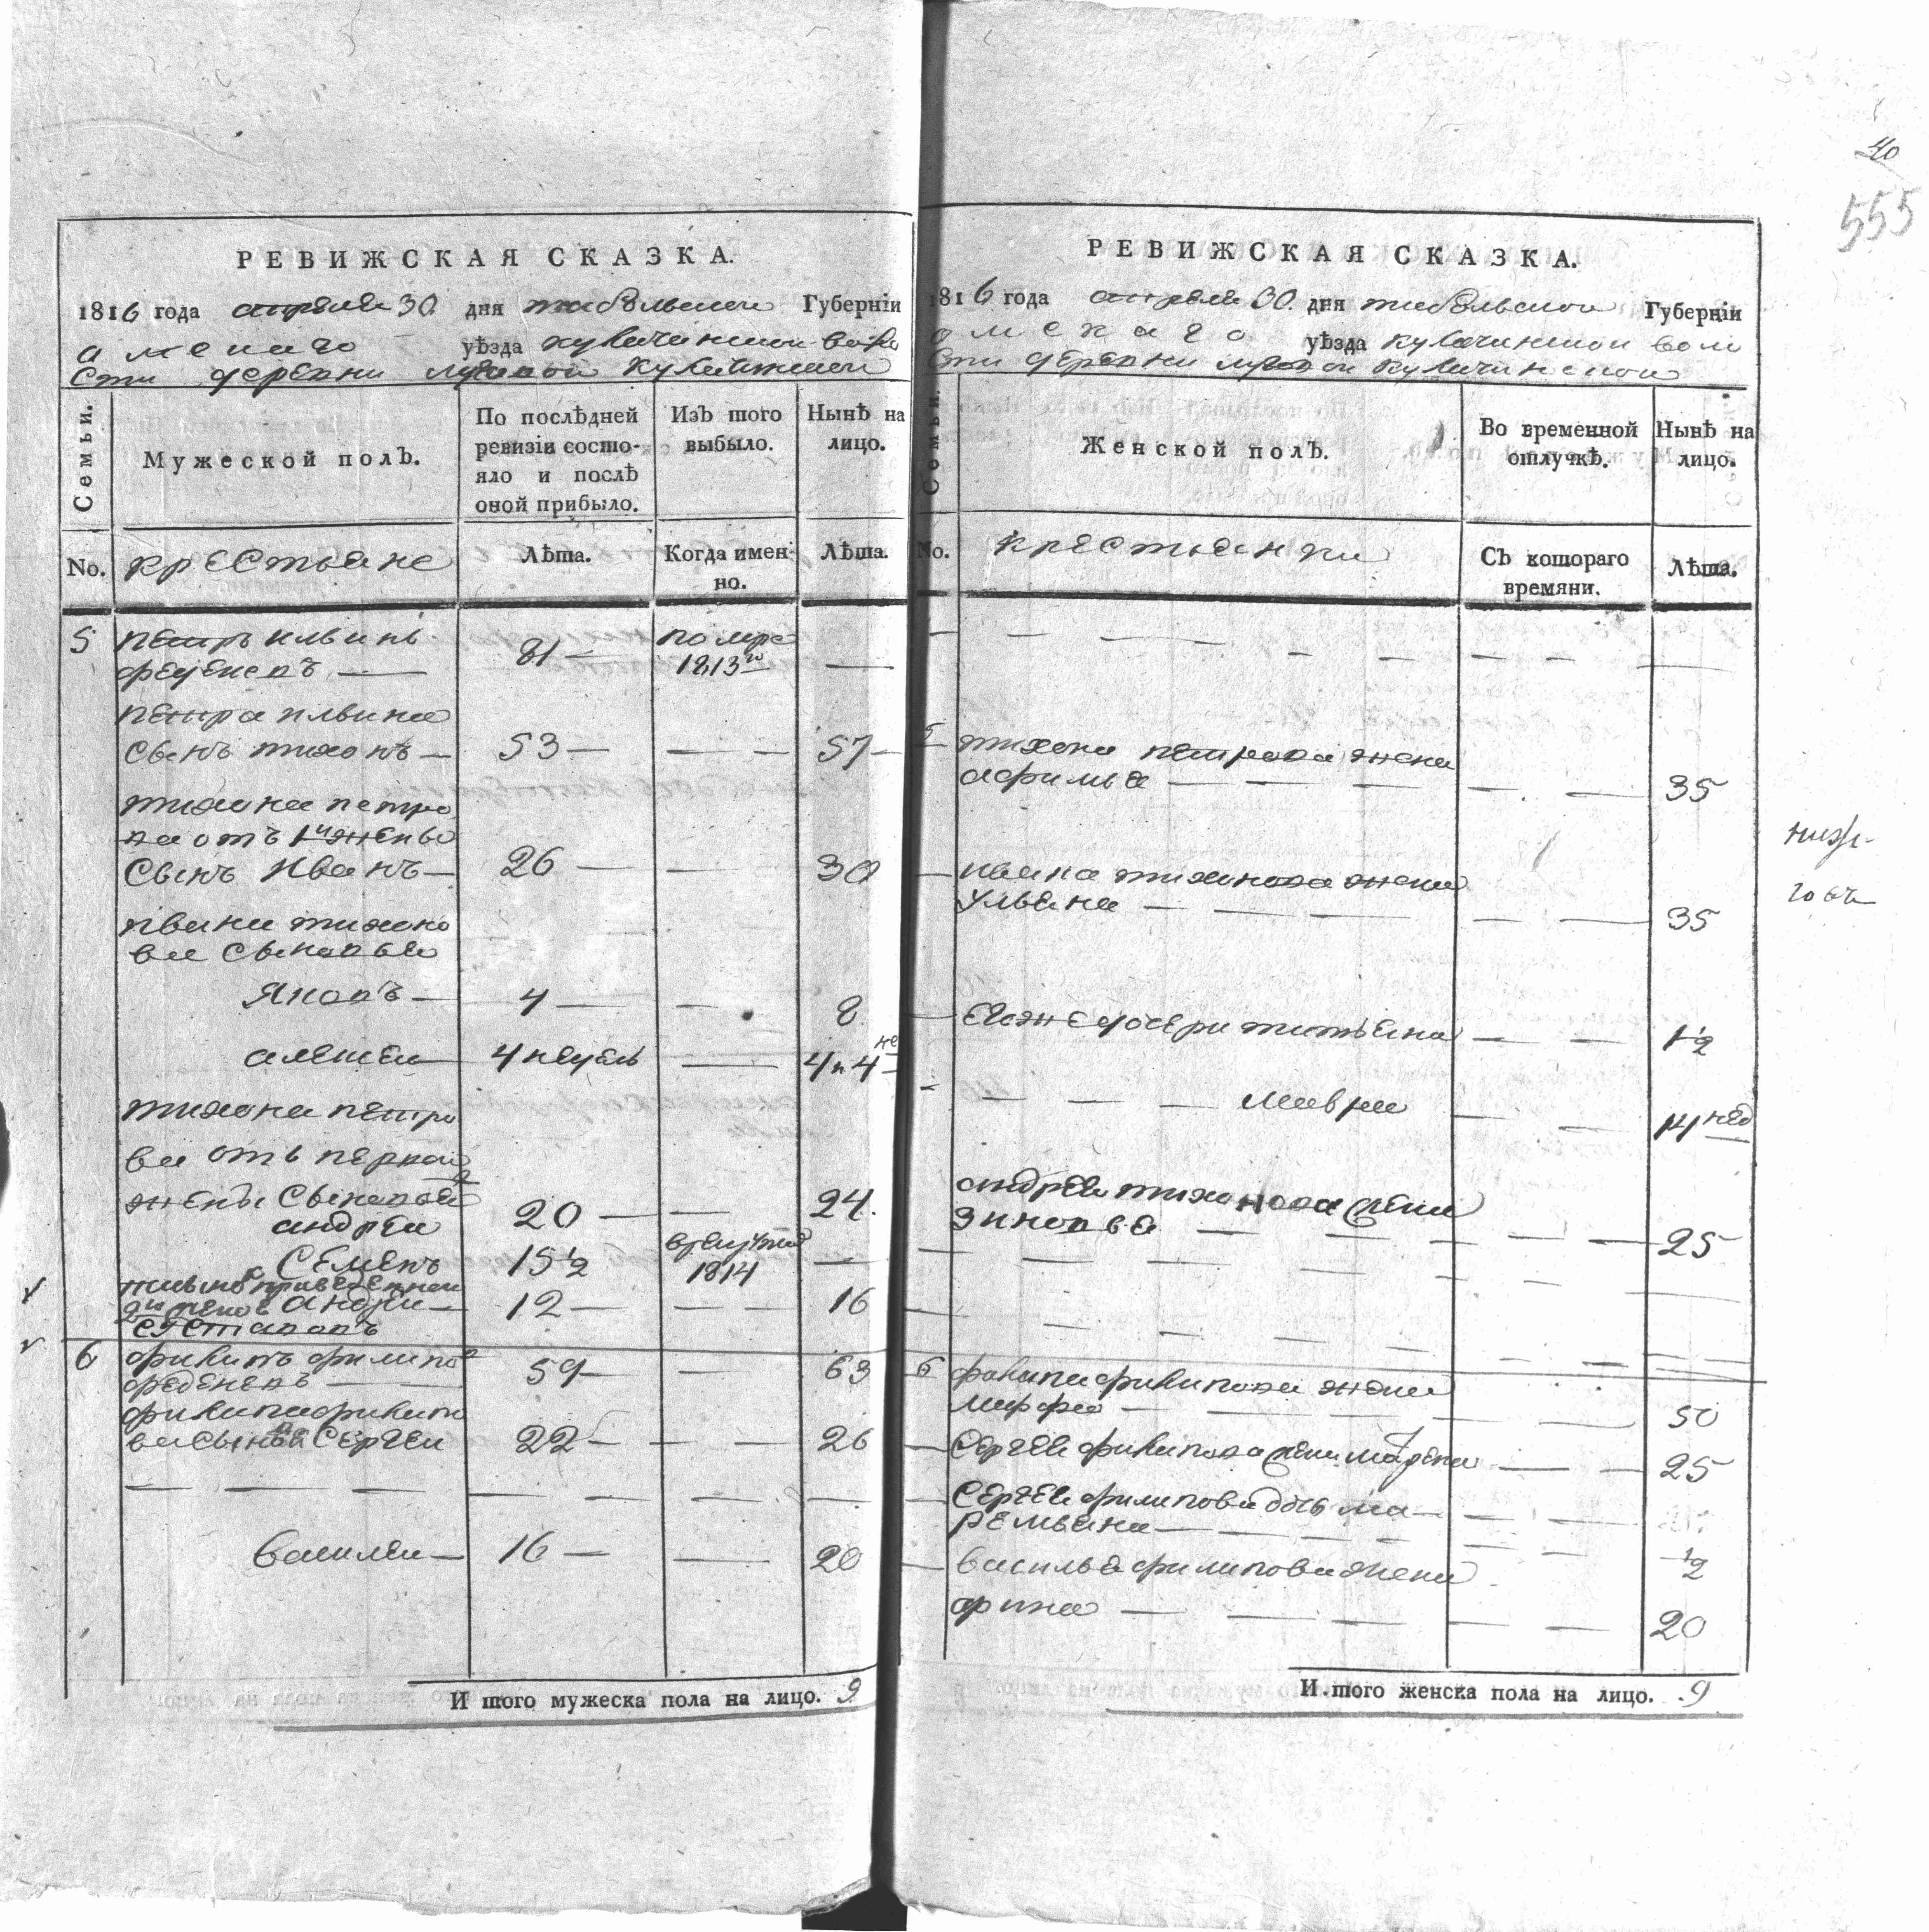 40
555
РЕВИЖСКАЯ СКАЗКА.
1816 года апреля 30 дня тобольской Губерніи
омскаго уѣзда кулачинской воло
сти деревни луговой кулачинской
Семьи.
Мужеской полЪ.
По послѣдней
ревизіи состо-
яло и послѣ
оной прибыло.
ИзЪ того
выбыло.
Нынѣ на
лицо.
No.
крестьяне
Лѣта.
Когда имен-
но.
Лѣта.
5 петръ ильинъ 81 — помре
феденевъ — 1813го —
петра ильина
сынъ тихонъ — 53 — — — 57 —
тихона петро
ва отъ 1й жены
сынъ иванъ — 26 — — 30
ивана тихоно
ва сыновья
яковъ — 4 — — 8
алексей 4 недель — 4 и 4 не
тихона петро
ва отъ первой
жены сыновья
андрей 20 — — 24
семенъ 15 1/2 1814 —
андрей — 12 — — — 16
6 филипъ филипо 59 — — 63
феденевъ —
филипа филипо
ва сыновья сергей 22 — — — 26
— — — — — — — —
василей — 16 — — 20
И того мужеска пола на лицо. 9
РЕВИЖСКАЯ СКАЗКА.
1816 года апреля 30 дня тобольской Губерніи
омскаго уѣзда кулачинской воло
сти деревни луговой кулачинской
Семьи.
Женской полЪ.
Во временной
отлучкѣ.
Нынѣ на
лицо.
No.
крестьянки
СЪ котораго
времяни.
Лѣта.
5 тихона петрова жена
афимья — — — — — 35
ивана тихонова жена
ульяна — — — — — 35
его же дочери татьяна — — 1 1/2
— — — мавра — — 14 нед
андрея тихонова жена
зиновья — — — — — 25
6 филипа филипова жена
марфа — — — — — 50
сергея филипова жена — — 25
сергея филипова дочь ма
ремьяна — — — — — 1/2
василья филипова жена
— — — — 20
И того женска пола на лицо. 9